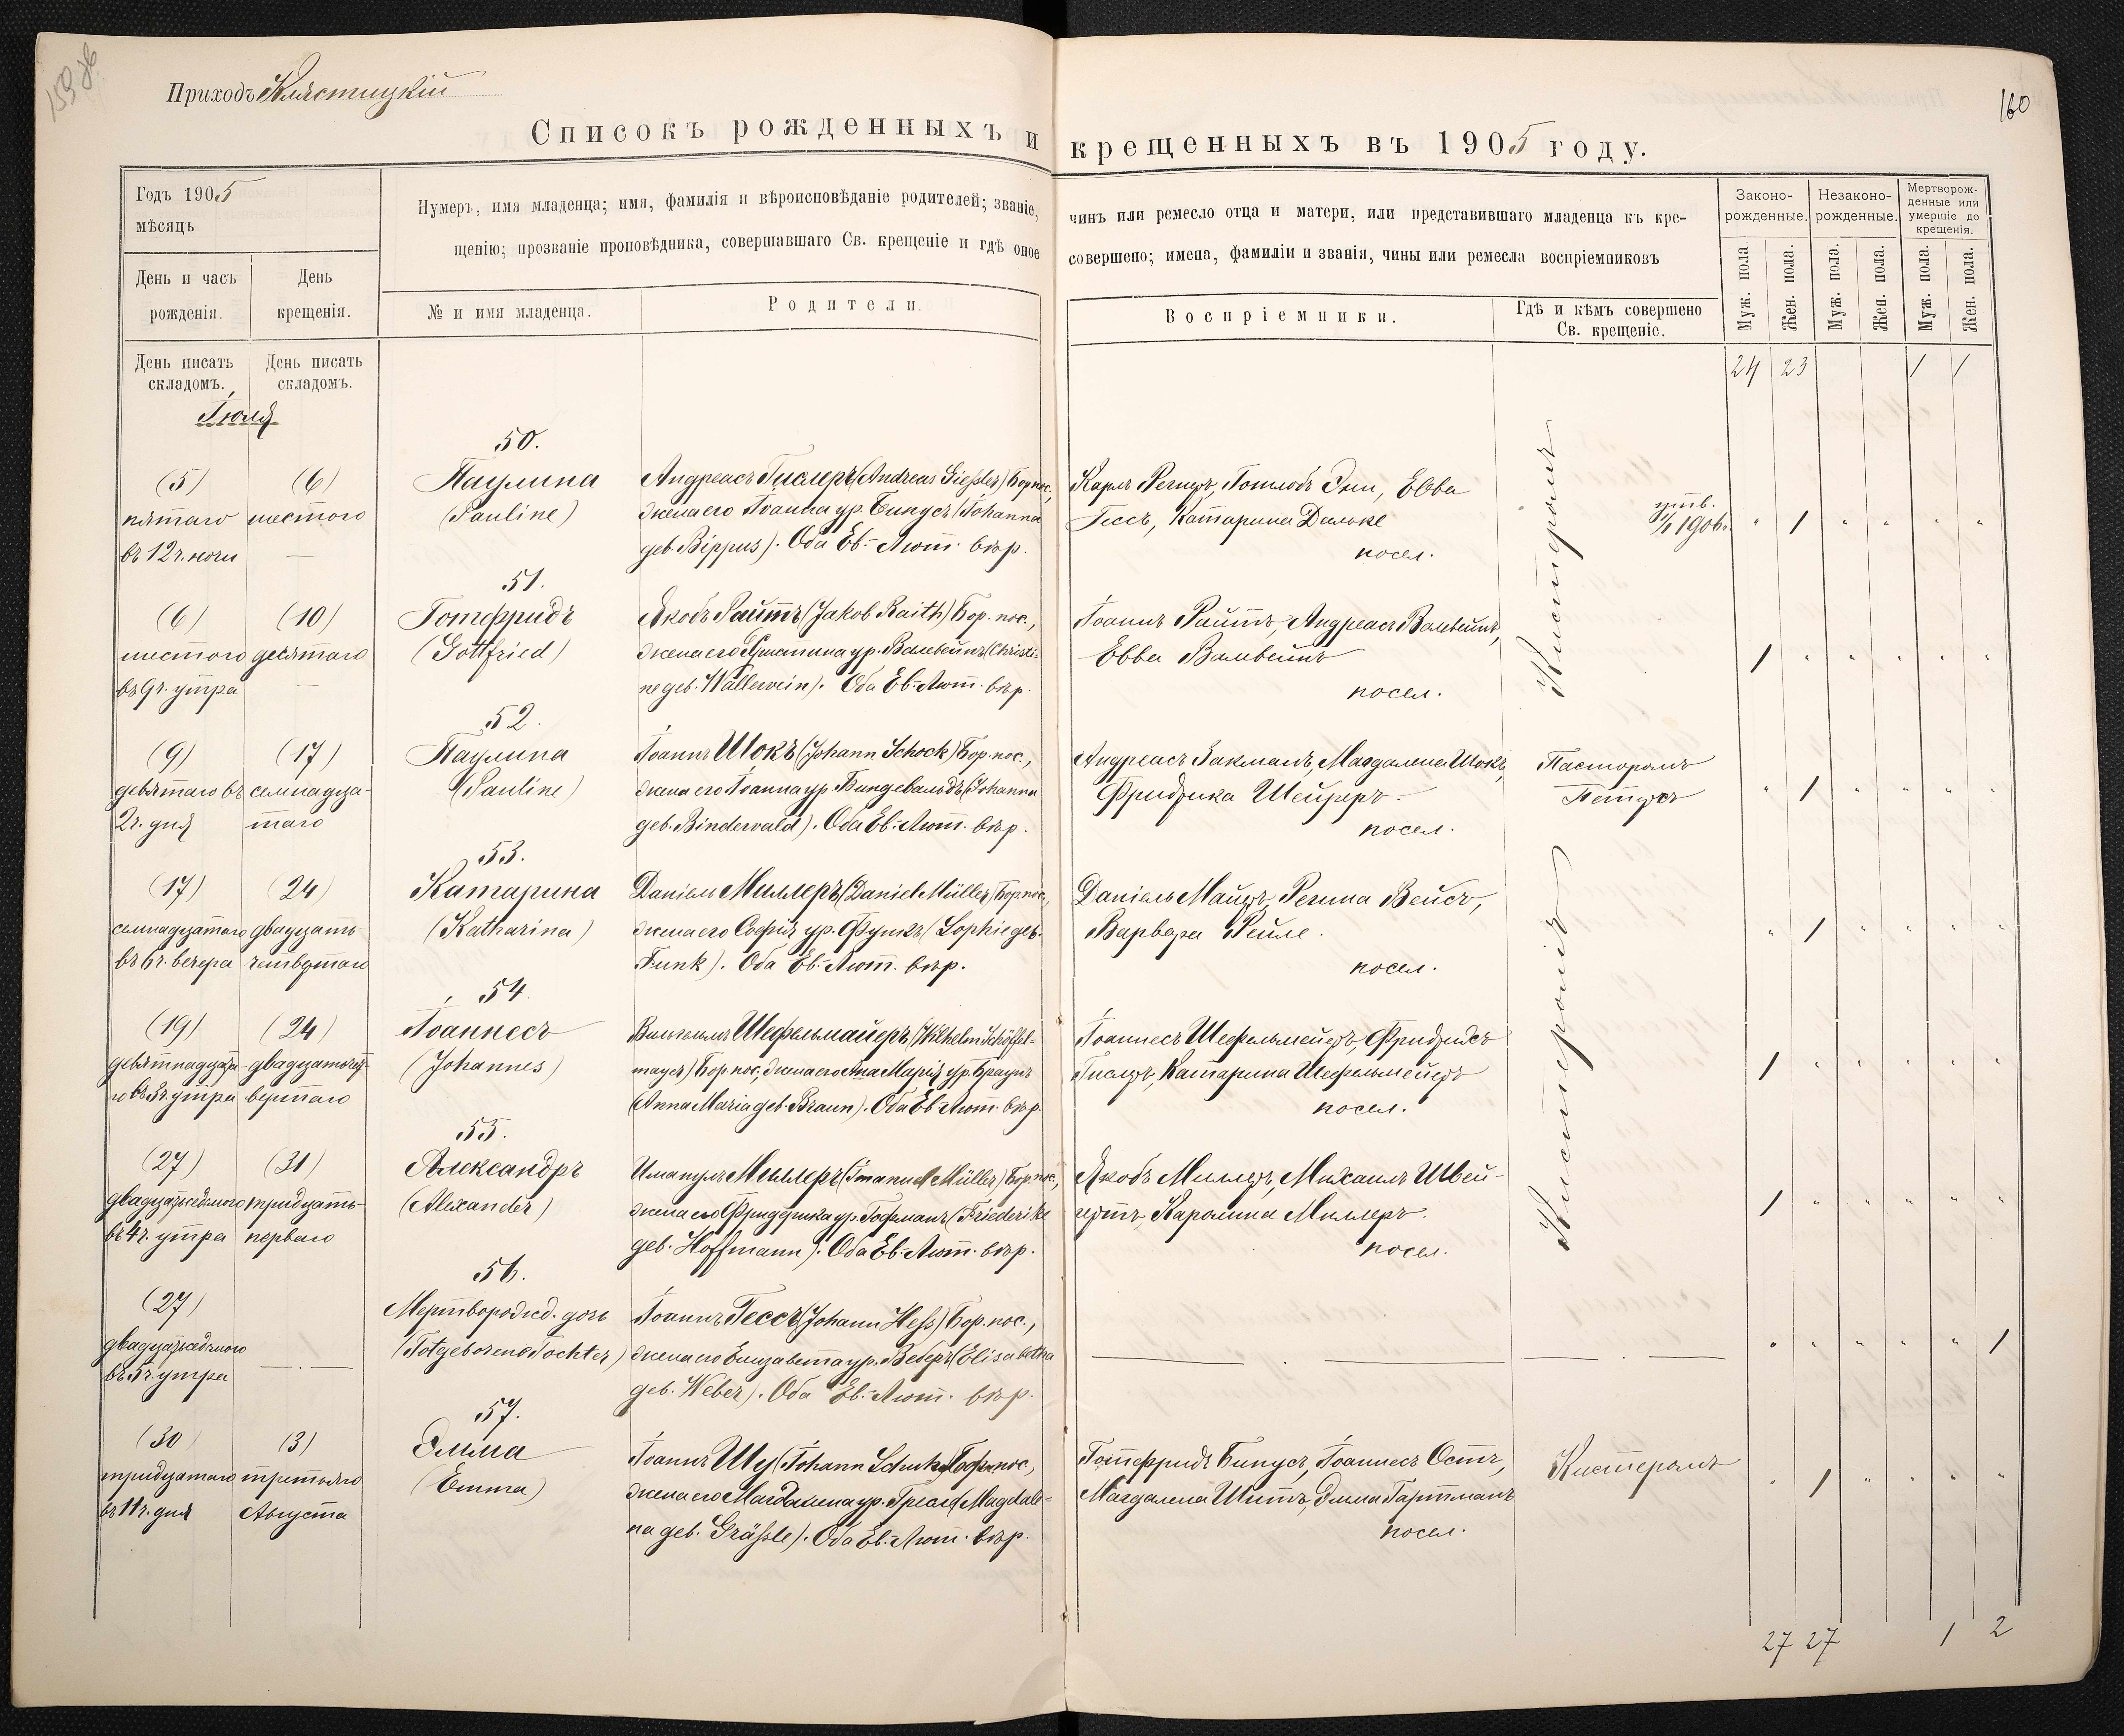 159 об
160
Приходъ Клястицкій
Списокъ рожденныхъ и крещенныхъ въ 1905 году.
Годъ 1905
мѣсяцъ
Нумеръ, имя младенца; имя, фамилія и вѣроисповѣданіе родителей; званіе, чинъ или ремесло отца и матери, или представившаго младенца къ кре-
щенію; прозваніе проповѣдника, совершавшаго Св. крещеніе и гдѣ оное совершено; имена, фамиліи и званія, чины или ремесла воспріемниковъ
День и часъ рожденія.
День крещенія.
№ и имя младенца.
Родители.
Воспріемники.
Гдѣ и кѣмъ совершено
Св. крещеніе.
Законо-
рожденные.
Незаконо-
рожденные.
Мертворож-
денные или
умершіе до
крещенія.
Муж. пола.
Жен. пола.
Муж. пола.
Жен. пола.
Муж. пола.
Жен. пола.
День писать
складомъ.
День писать
складомъ.
24 23 1 1
Іюля
50.
(5)
пятаго
въ 12 ч. ночи
(6)
шестого
Паулина
(Pauline)
Андреасъ Гислеръ (Andreas Giessler) Бор. пос.,
жена его Іоанна ур. Бипусъ (Johanna
geb. Bippus). Оба Ев.-Лют. вѣр.
Карлъ Регнеръ, Готлобъ Эни, Ева
Гессъ, Катарина Дальке
посел.
Кистеромъ
утв.
1/I 1906.
" 1 " " " "
51.
(6)
шестого
въ 9 ч. утра
(10)
десятаго
Готфридъ
(Gottfried)
Якобъ Райтъ (Jakob Raith) Бор. пос.,
жена его Христина ур. Валвейнъ (Christi-
ne geb. Wallewein). Оба Ев.-Лют. вѣр.
Іоаннъ Райтъ, Андреасъ Валвейнъ,
Ева Валвейнъ
посел.
1 " " " " "
52.
(9)
девятаго въ
2 ч. дня
(17)
семнадца-
таго
Паулина
(Pauline)
Іоаннъ Шокъ (Johann Schock) Бор. пос.,
жена его Іоанна ур. Биндевальдъ (Johanna
geb. Bindewald). Оба Ев.-Лют. вѣр.
Андреасъ Закманъ, Магдалена Шокъ,
Фридрика Шейреръ.
посел.
Пасторомъ
" 1 " " " "
53.
(17)
семнадцатаго
въ 6 ч. вечера
(24)
двадцать
четвертаго
Катарина
(Katharina)
Даніель Миллеръ (Daniel Müller) Бор. пос.,
жена его Софія ур. Функъ (Sophie geb.
Funk). Оба Ев.-Лют. вѣр.
Даніель Майеръ, Регина Вейсъ,
Варвара Рейле.
посел.
Кистеромъ
" 1 " " " "
54.
(19)
девятнадцата-
го въ 5 ч. утра
(24)
двадцать чет-
вертаго
Іоаннесъ
(Johannes)
Вильгельмъ Шефельмайеръ (Wilhelm Schöffel-
mayer) Бор. пос., жена его Анна Марія ур. Браунъ
(Anna Maria geb. Braun). Оба Ев.-Лют. вѣр.
Іоаннесъ Шефельмейеръ, Фридрихъ
Гислеръ, Катарина Шефельмейеръ
посел.
1 " " " " "
55.
(27)
двадцать седьмого
въ 4 ч. утра
(31)
тридцать
перваго
Александръ
(Alexander)
Имануилъ Миллеръ (Imanuel Müller) Бор. пос.,
жена его Фридерика ур. Гофманъ (Friederike
geb. Hoffmann). Оба Ев.-Лют. вѣр.
Якобъ Миллеръ, Михаилъ Швей-
гертъ, Каролина Миллеръ.
посел.
1 " " " " "
56.
(27)
двадцать седьмого
въ 5 ч. утра
Мертворожд. дочь
(Totgeborene Tochter)
Іоаннъ Гессъ (Johann Hess) Бор. пос.,
жена его Елизавета ур. Веберъ (Elisabetha
geb. Weber). Оба Ев.-Лют. вѣр.
" " " " " 1
57.
(30)
тридцатаго
въ 11 ч. дня
(3)
третьяго
Августа
Эмма
(Emma)
Іоаннъ Шу (Johann Schuh) Бор. пос.,
жена его Магдалена ур. Гресле (Magdale-
na geb. Grässle). Оба Ев.-Лют. вѣр.
Готфридъ Бипусъ, Іоаннесъ Остъ,
Магдалена Шитъ, Эмма Гартманъ
посел.
Кистеромъ
" 1 " " " "
27 27 1 2